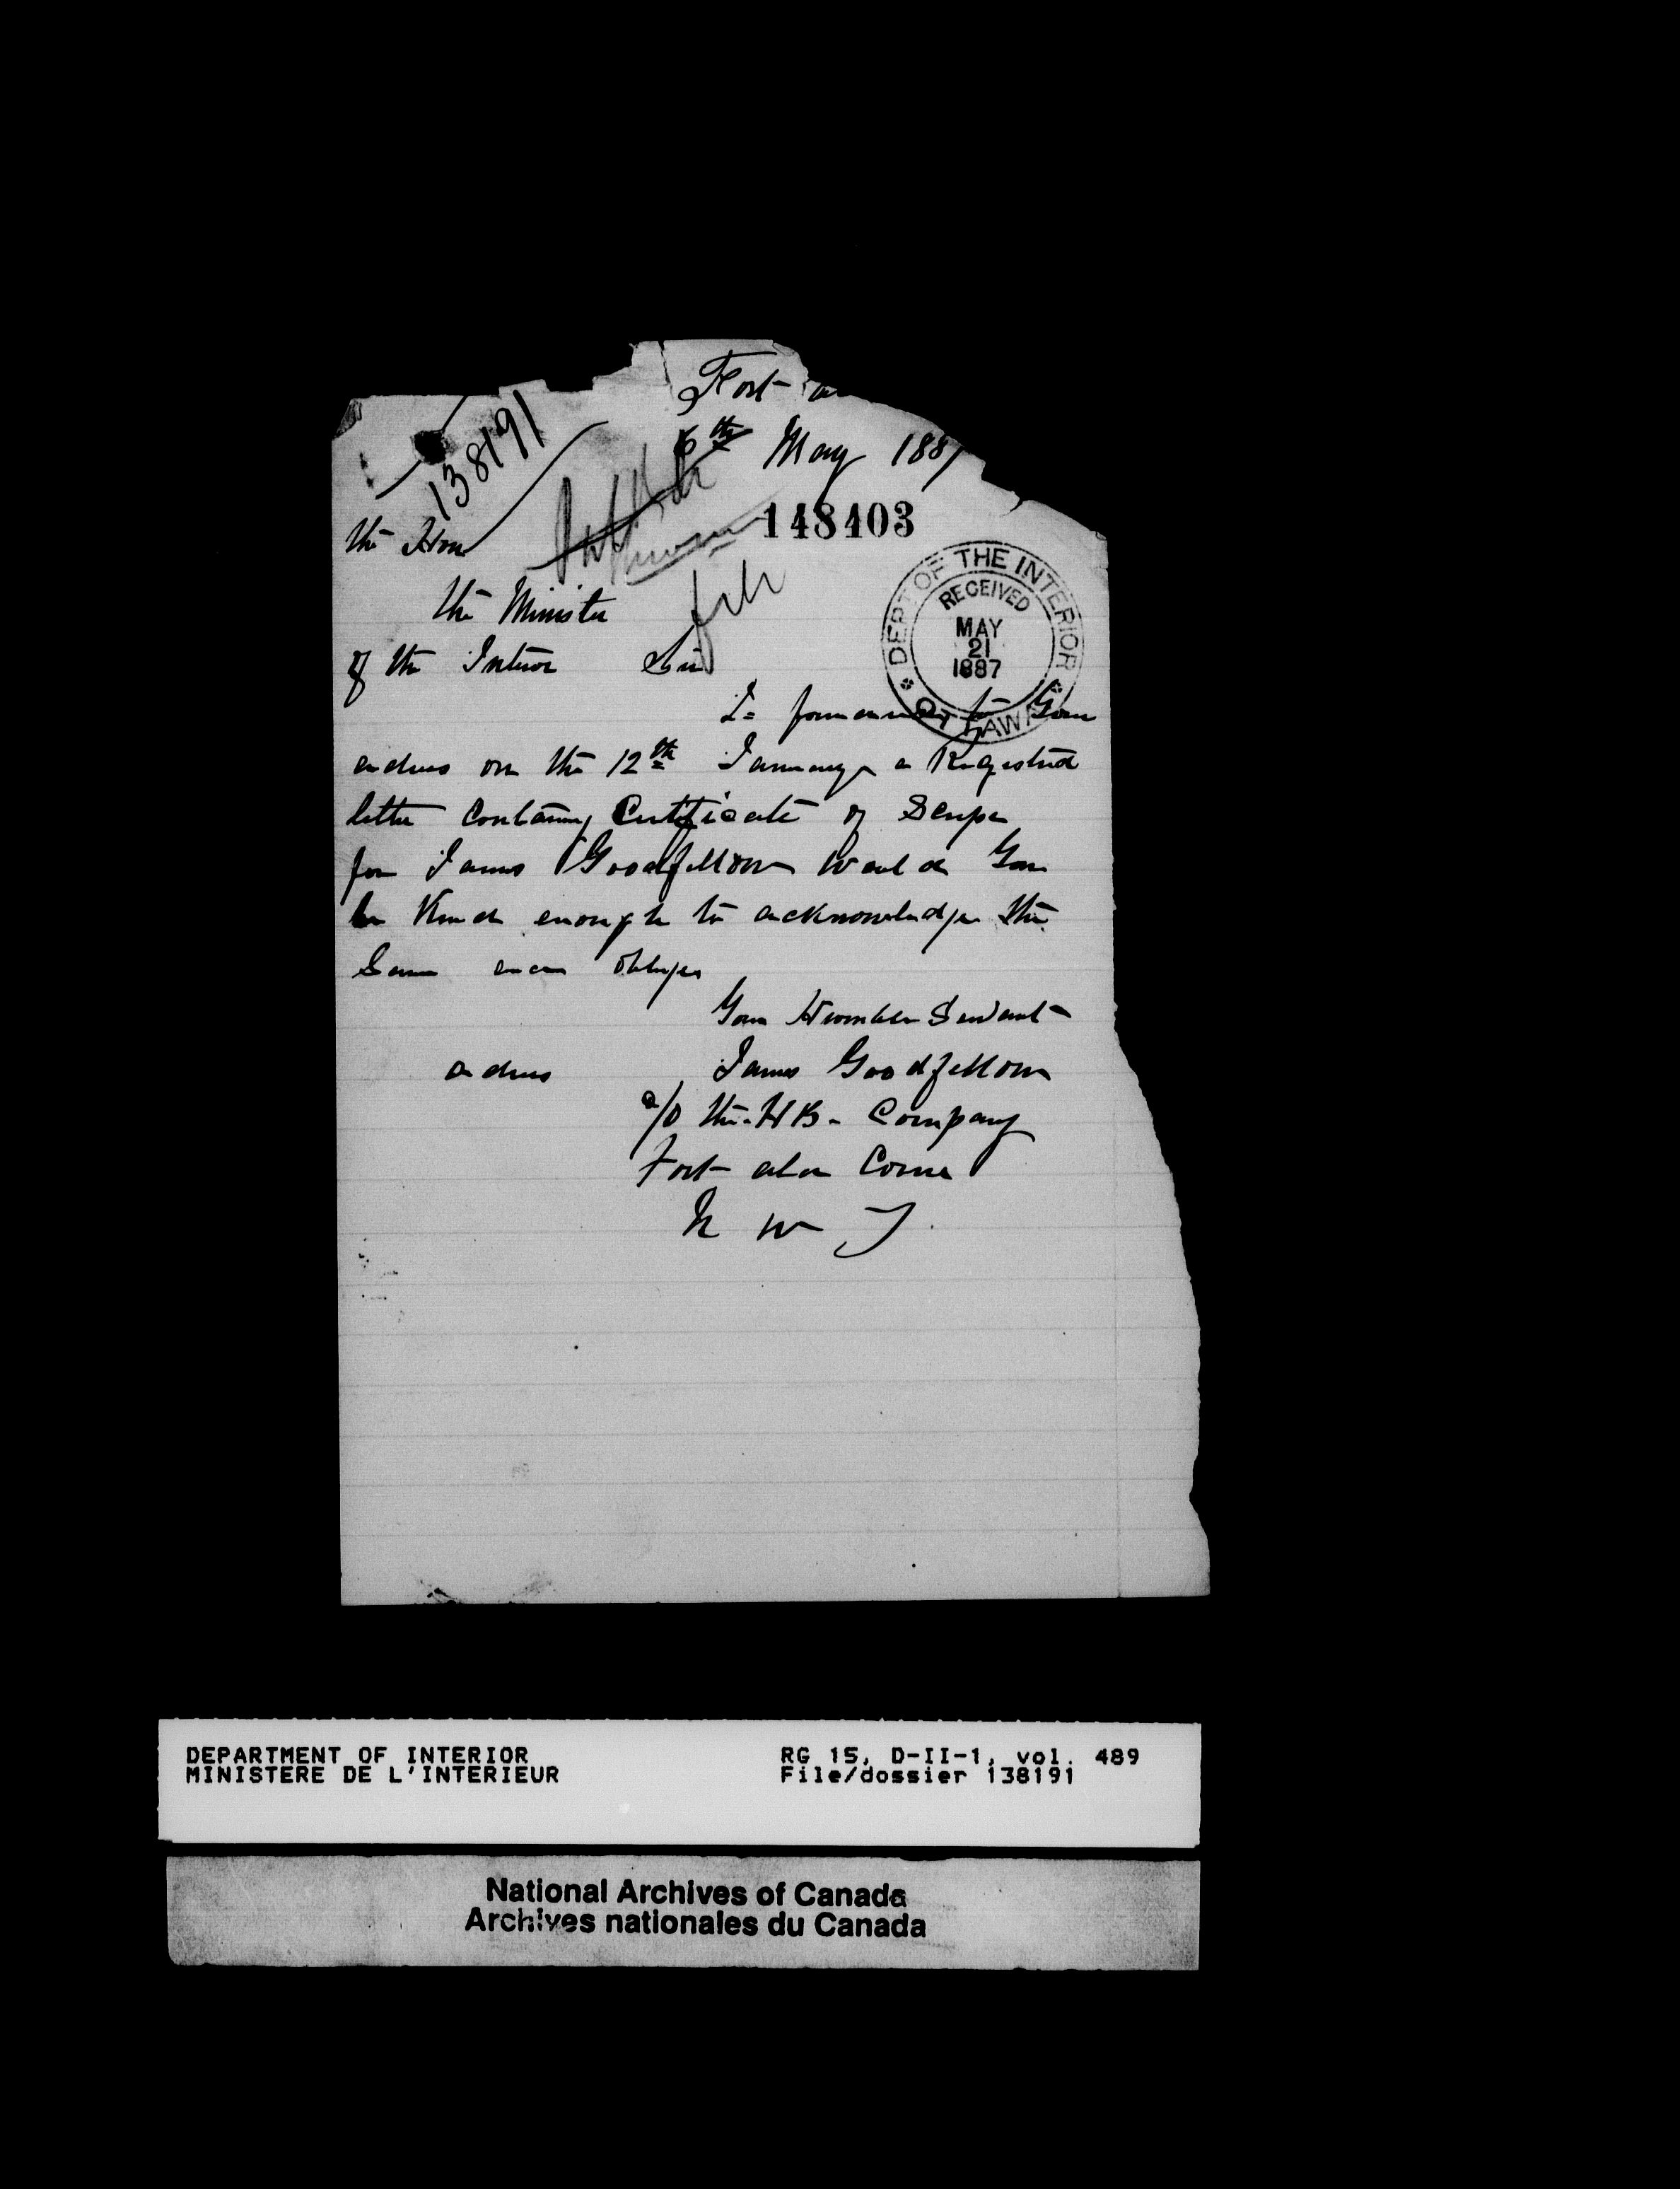 Fort a
6th May 1887
138191
148403
the Hon
the Minister
of the Interior Sir
file
DEPT OF THE INTERIOR
RECEIVED
MAY
21
1887
OTTAWA
I forwarded to your
adress on the 12th January a Registred
letter containg Certificate of Scripe
for James Goodfellow would you
be kind enough to acknowledge the
Same and oblige
Your Humble Servant
adress James Goodfellow
c/o the H B. Company
Fort ala Corne
N W T.
DEPARTMENT OF INTERIOR
MINISTERE DE L'INTERIEUR
RG 15, D-II-1, vol. 489
File/dossier 138191
National Archives of Canada
Archives nationales du Canada